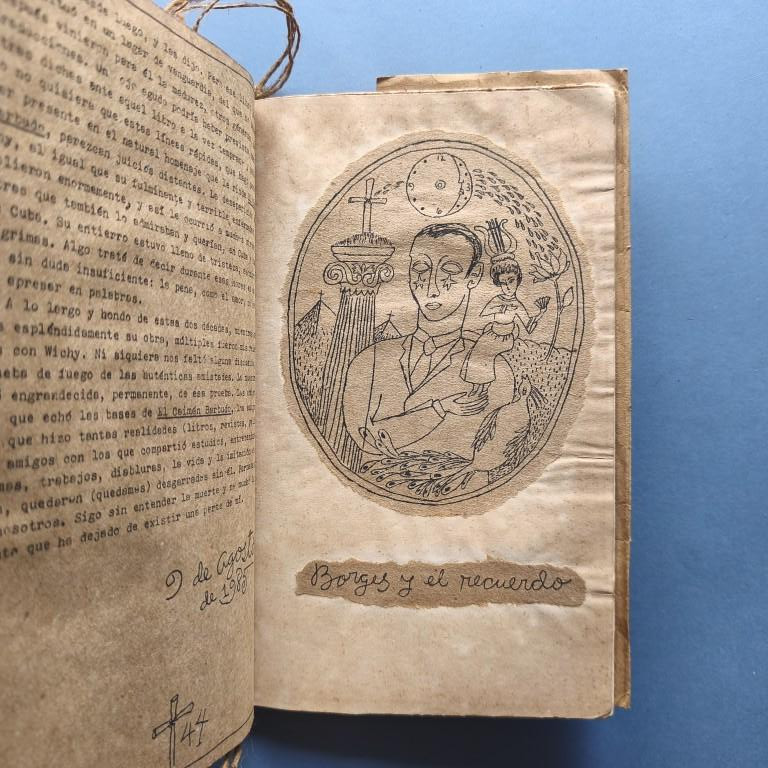 desde luego, y les dijo, pero ese
en un lugar de vanguardia, del que
vinieron para él la madurez, otros géneros
Un ojo agudo podría haber
dichas ante aquel libro a la vez
no quisiera que estas líneas rápidas, que
presente en el natural homenaje que la
Barbudo, perezcan juicios distantes. La desaparición
al igual que su fulminante y terrible enfermedad
dolieron enormemente, y así le ocurrió a muchos
que también lo admiraban y querían, en Cuba
Cuba. Su entierro estuvo lleno de tristeza,
grimas. Algo traté de decir durante esas
sin duda insuficiente: la pena, como el amor, no
expresar en palabras.
A lo largo y hondo de estas dos décadas, mientras
espléndidamente su obra, múltiples fueron mis
con Wichy. Ni siquiera nos faltó alguna discusión
de fuego de las auténticas amistades. La nuestra
engrandecida, permanente, de esa prueba. Las
que echó las bases de El Caimán Barbudo, los
que hizo tantas realidades (libros, revistas,
amigos con los que compartió estudios,
trabajos, diabluras, la vida y la imitación
quedaron (quedamos) desgarrados sin él.
nosotros. Sigo sin entender la muerte y
que ha dejado de existir una parte de mí.
9 de agosto
de 1985
44
12
Borges y el recuerdo